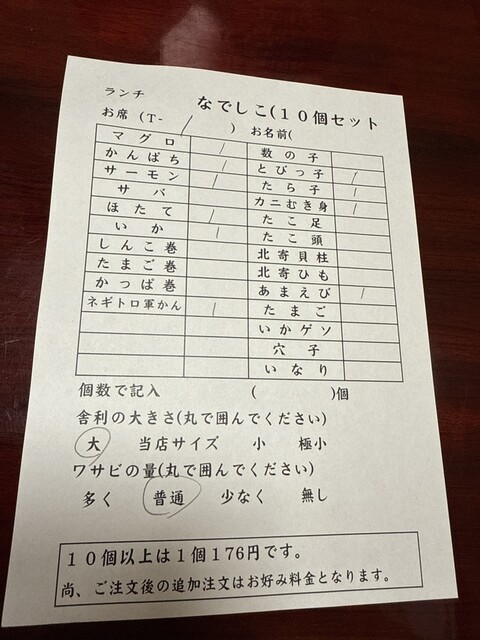 ランチ
なでしこ(10個セット
お席 (T- / ) お名前(
マグロ /
かんぱち /
サーモン /
サバ
ほたて /
いか /
しんこ巻
たまご巻
かっぱ巻
ネギトロ軍かん /
数の子
とびっ子 /
たら子 /
カニむき身 /
たこ足
たこ頭
北寄貝柱
北寄ひも
あまえび /
たまご
いかゲソ
穴子
いなり
個数で記入 ( )個
舎利の大きさ(丸で囲んでください)
大 当店サイズ 小 極小
ワサビの量(丸で囲んでください)
多く 普通 少なく 無し
10個以上は1個176円です。
尚、ご注文後の追加注文はお好み料金となります。